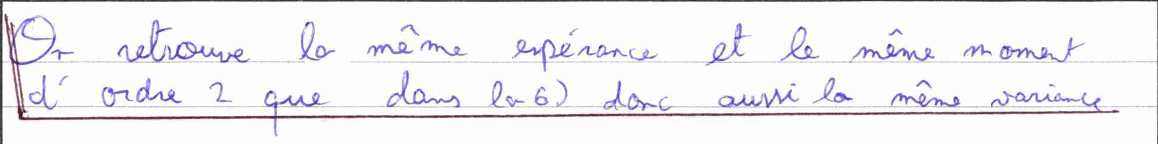 On retrouve la même espérance et le même moment
d'ordre 2 que dans la 6) donc aussi la même variance